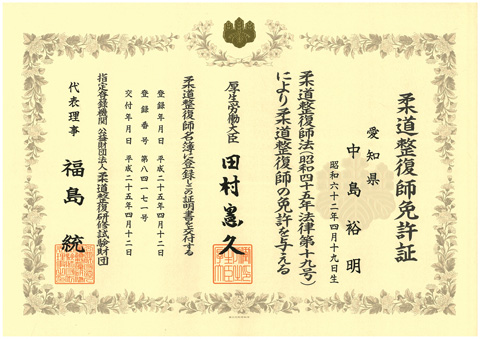 柔道整復師免許証
愛知県
中島裕明
昭和六十二年四月十九日生
柔道整復師法(昭和四十五年法律第十九号)
により柔道整復師の免許を与える
厚生労働大臣 田村憲久
柔道整復師名簿に登録しこの証明書を交付する
登録年月日 平成二十五年四月十二日
登録番号 第八四一七一号
交付年月日 平成二十五年四月十二日
指定登録機関 公益財団法人柔道整復研修試験財団
代表理事 福島統